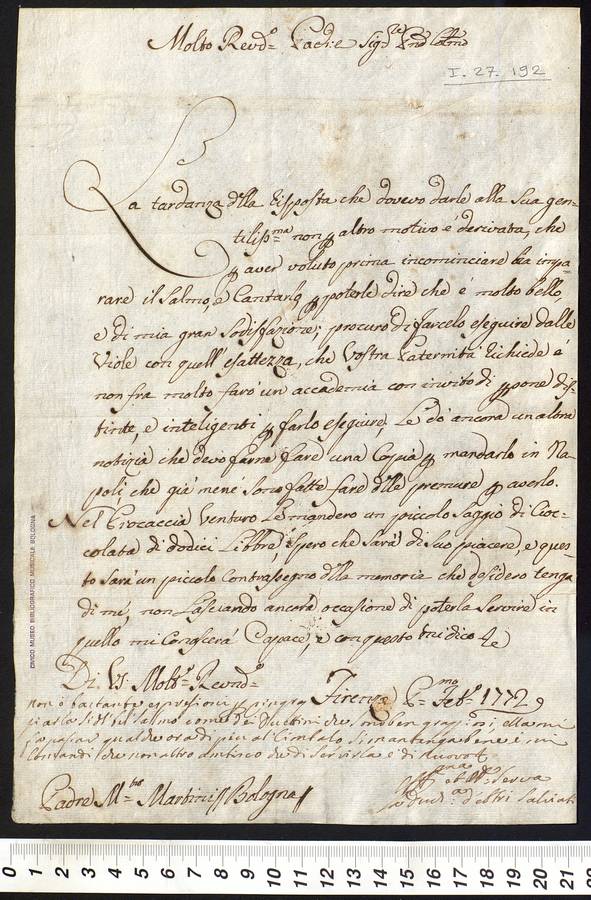 Molto Revdo Padre Sigre Pnē Colmo
I. 27. 192
La tardanza della risposta che dovevo darle alla sua gen=
tilissma non p altro motivo è derivata, che
p aver voluto prima incominciare ad impa
rare il Salmo, e Cantarlo p poterle dire che e molto bello,
e di mia gran Sodisfazione; procuro di farcelo eseguire dalle
Viole con quell'esattezza, che Vostra Paternità richiede e
non fra molto farò un accademia con invito di psone dis=
tinte, e inteligenti p farlo eseguire. Le dò ancora un altra
notizia che devo farne fare una Copia p mandarlo in Na
poli, che già mene sono fatte fare delle premure p averlo.
Nel Procaccia Venturo Le manderò un piccolo saggio di Cioc=
colata di dodici Libbre, spero che sarà di suo piacere, e ques=
to sarà un piccolo Contrassegno della memoria che desidero tenga
di me, non Lasciando ancora occasione di poterla Servire in
quello mi Conoscerà Capace, e con questo mi dico
Di VS Molto Revnd
Firenze Pmo Febo 1772
non ò bastante espressioni p
il salmo come i Duettini che
qualche ora di più al Cimbalo si mantenga bene e mi
Comandi che non altro ambisco che di Servirla e di nuovo
Serva
Salviati
Padre Mro Martini // Bologna //
CIVICO MUSEO BIBLIOGRAFICO MUSICALE BOLOGNA
0 1 2 3 4 5 6 7 8 9 10 11 12 13 14 15 16 17 18 19 20 21